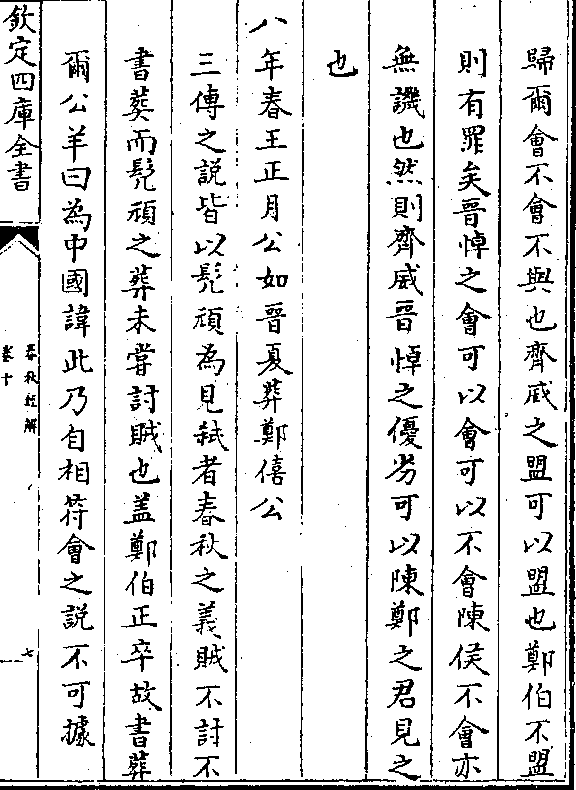 歸爾會不會不與也齊威之盟可以盟也鄭伯不盟
則有罪矣晉悼之會可以會可以不會陳侯不會亦
無譏也然則齊威晉悼之優劣可以陳鄭之君見之
也
八年春王正月公如晉夏葬鄭僖公
三傳之說皆以髠頑為見弑者春秋之義賊不討不
書葬而髠頑之葬未嘗討賊也盖鄭伯正卒故書葬
爾公羊曰為中國諱此乃自相符會之說不可據
欽定四庫全書
春秋經解
卷十
七